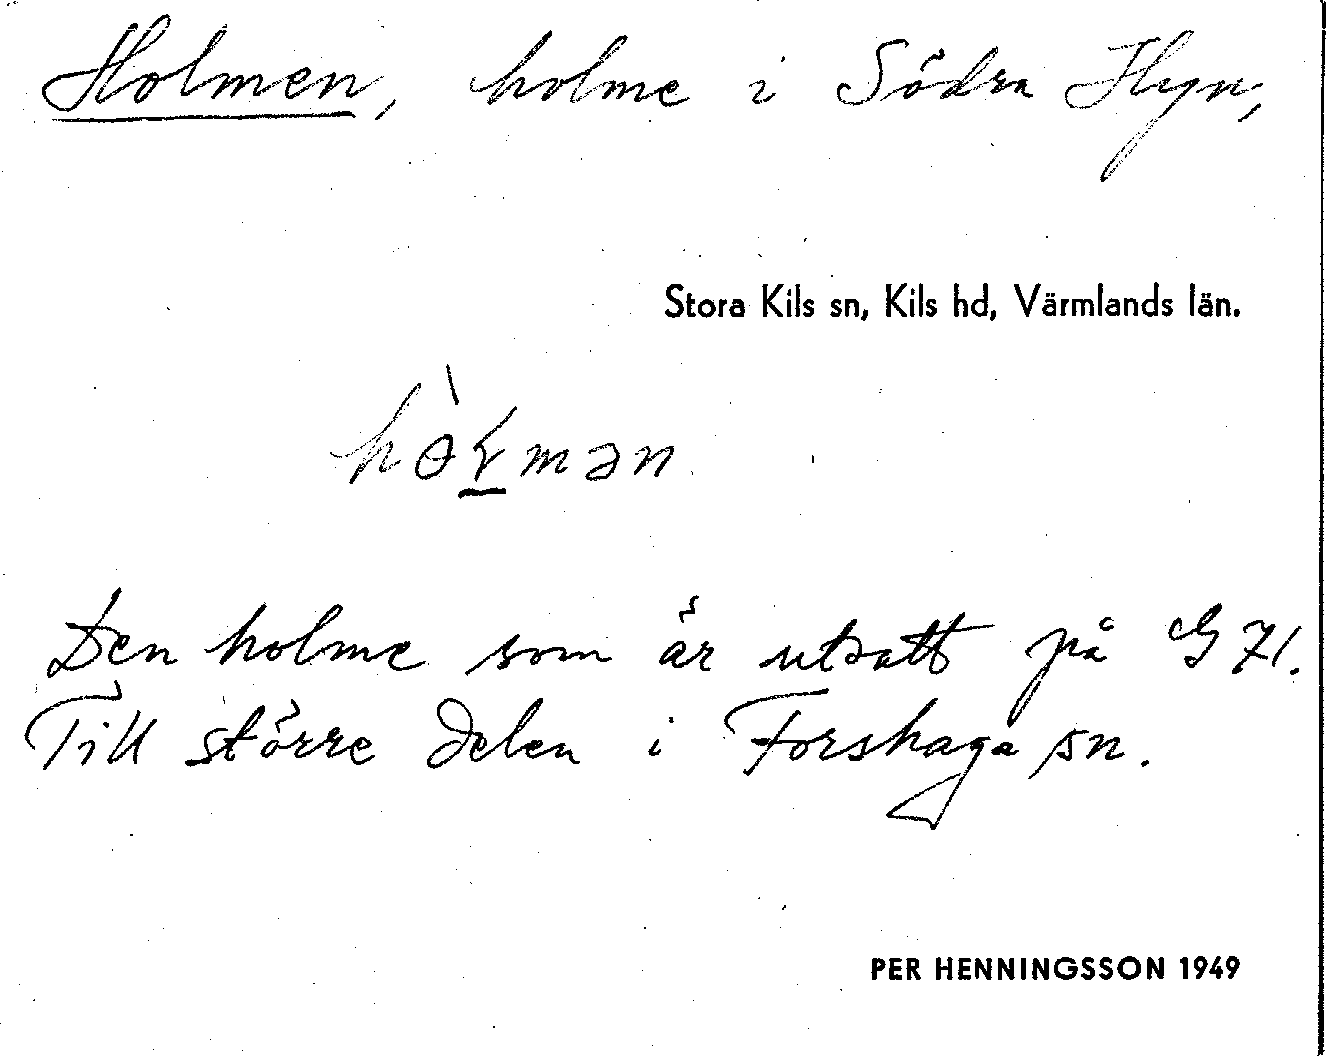 Holmen, holme i Södra Hyn,
Stora Kils sn, Kils hd, Värmlands län.
Den holme som är utsatt på G 71.
Till större delen i Forshaga sn.
PER HENNINGSSON 1949